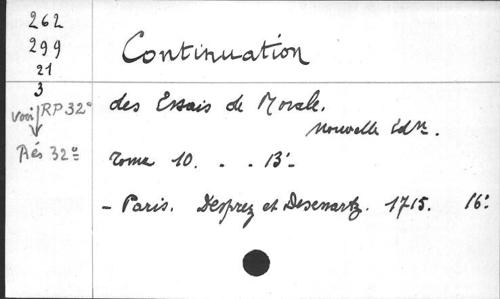 262
299
21
3
voir RP 32°
Rés 32°
Continuation
des Essais de Morale.
Nouvelle Edon.
Tome 10. . . 13.-
- Paris. Desprez et Desessartz. 1715. 16°